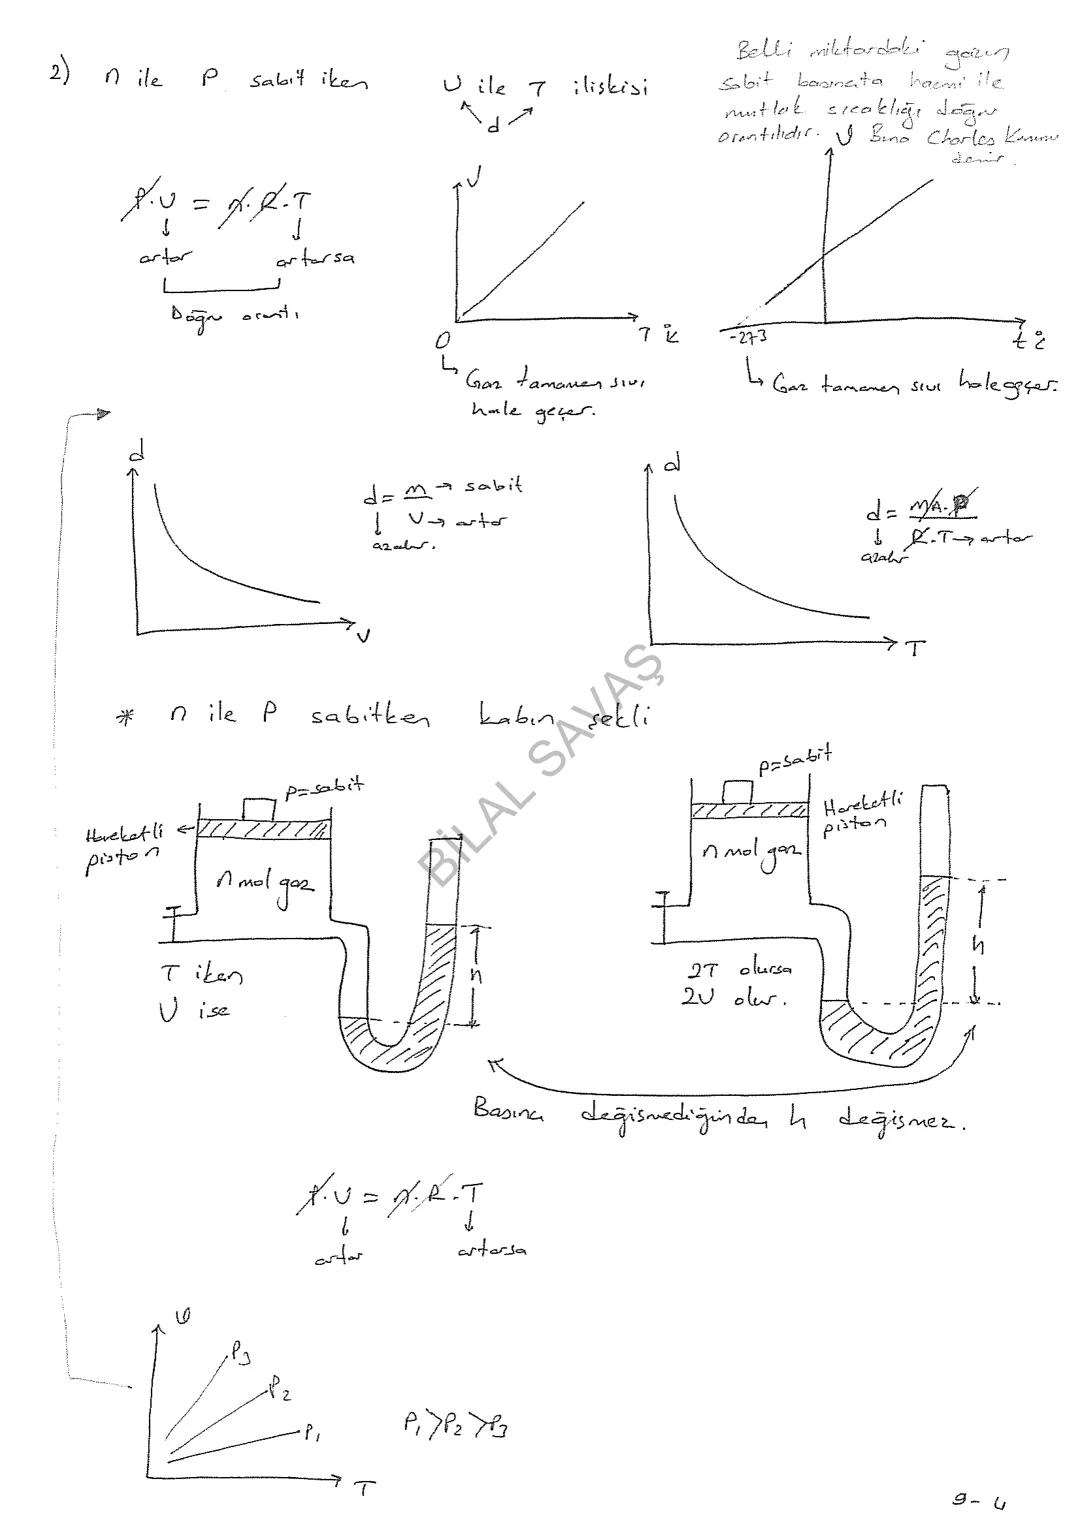 2) n ile P sabit iken V ile T ilişkisi
d
Belli miktardaki gazın
sabit basınçta hacmi ile
mutlak sıcaklığı doğru
orantılıdır. Buna Charles Kanunu
denir.
P.V = n.R.T
artar artarsa
Doğru orantı
V
0
T °K
Gaz tamamen sıvı
hale geçer.
V
-273
t °C
Gaz tamamen sıvı hale geçer.
d
V
d = m → sabit
V → artar
azalır.
d
T
d = MA.P
R.T → artar
azalır
* n ile P sabitken kabın şekli
P=sabit
Hareketli
piston
n mol gaz
T iken
V ise
h
P=sabit
Hareketli
piston
n mol gaz
2T olursa
2V olur.
h
Basınç değişmediğinden h değişmez.
P.V = n.R.T
artar artarsa
V
P3
P2
P1
T
P1>P2>P3
BİLAL SAVAŞ
9-4